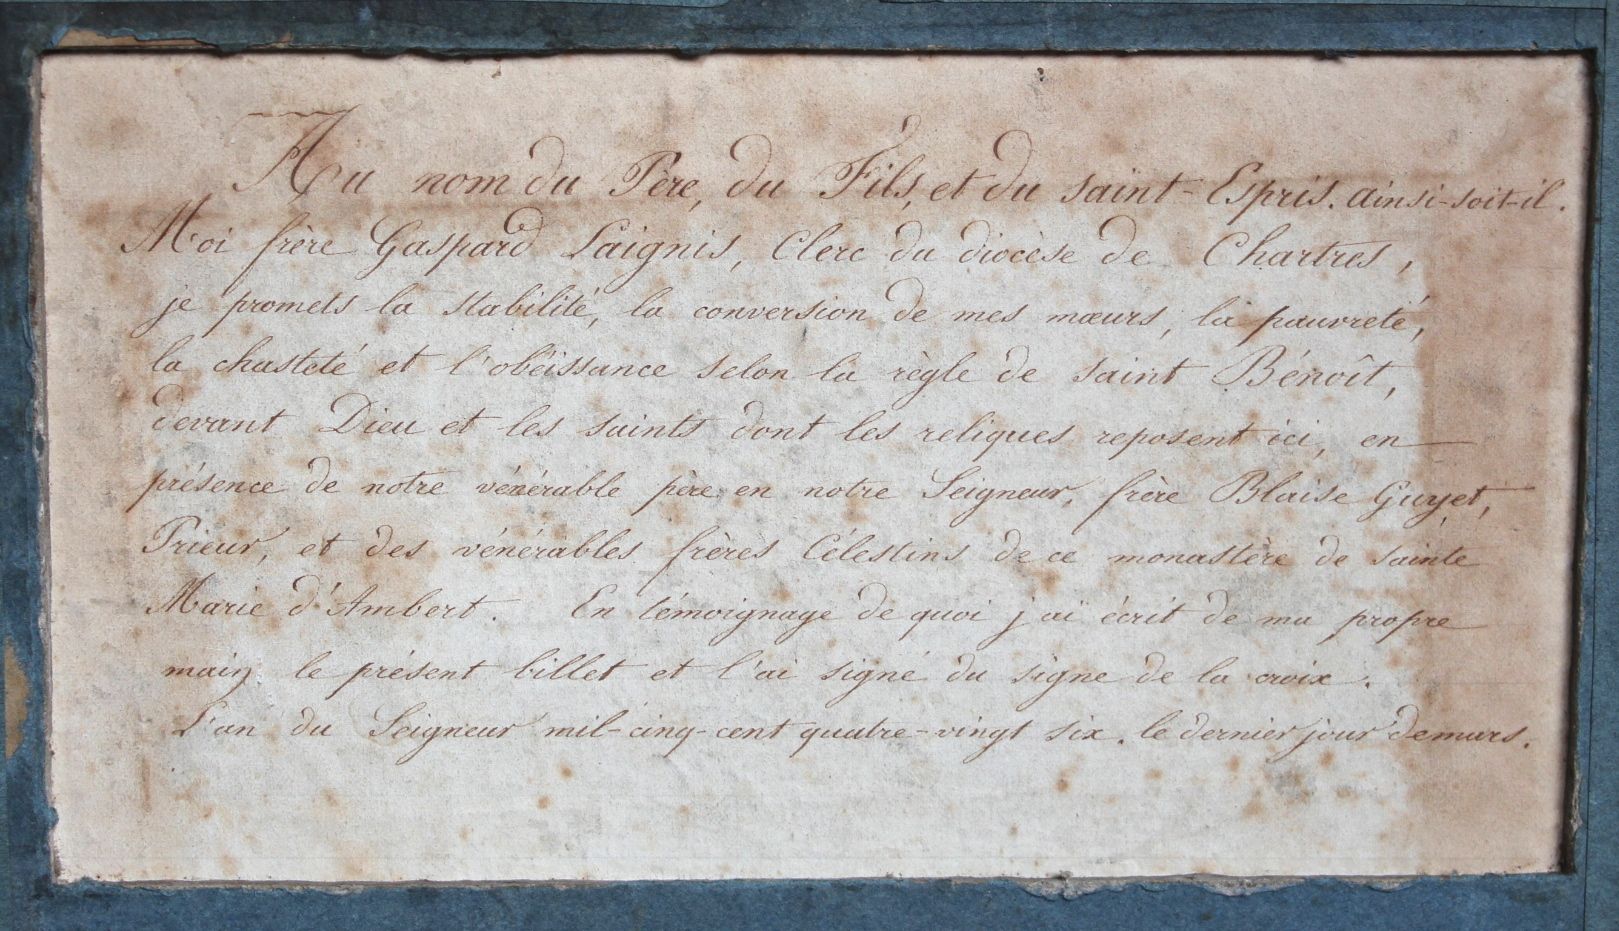 Au nom du Père, du Fils, et du saint-Espris. ainsi-soit-il.
Moi frère Gaspard Laignis, Clerc du diocèse de Chartres,
je promets la stabilité, la conversion de mes mœurs, la pauvreté,
la chasteté et l'obéissance selon la règle de saint Bénoît,
devant Dieu et les saints dont les reliques reposent ici, en
présence de notre vénérable père en notre Seigneur, frère Blaise Guyet,
Prieur, et des vénérables frères Célestins de ce monastère de sainte
Marie d'Ambert. En témoignage de quoi j'ai écrit de ma propre
main le présent billet et l'ai signé du signe de la croix.
L'an du Seigneur mil-cinq-cent quatre-vingt six. le dernier jour de mars.